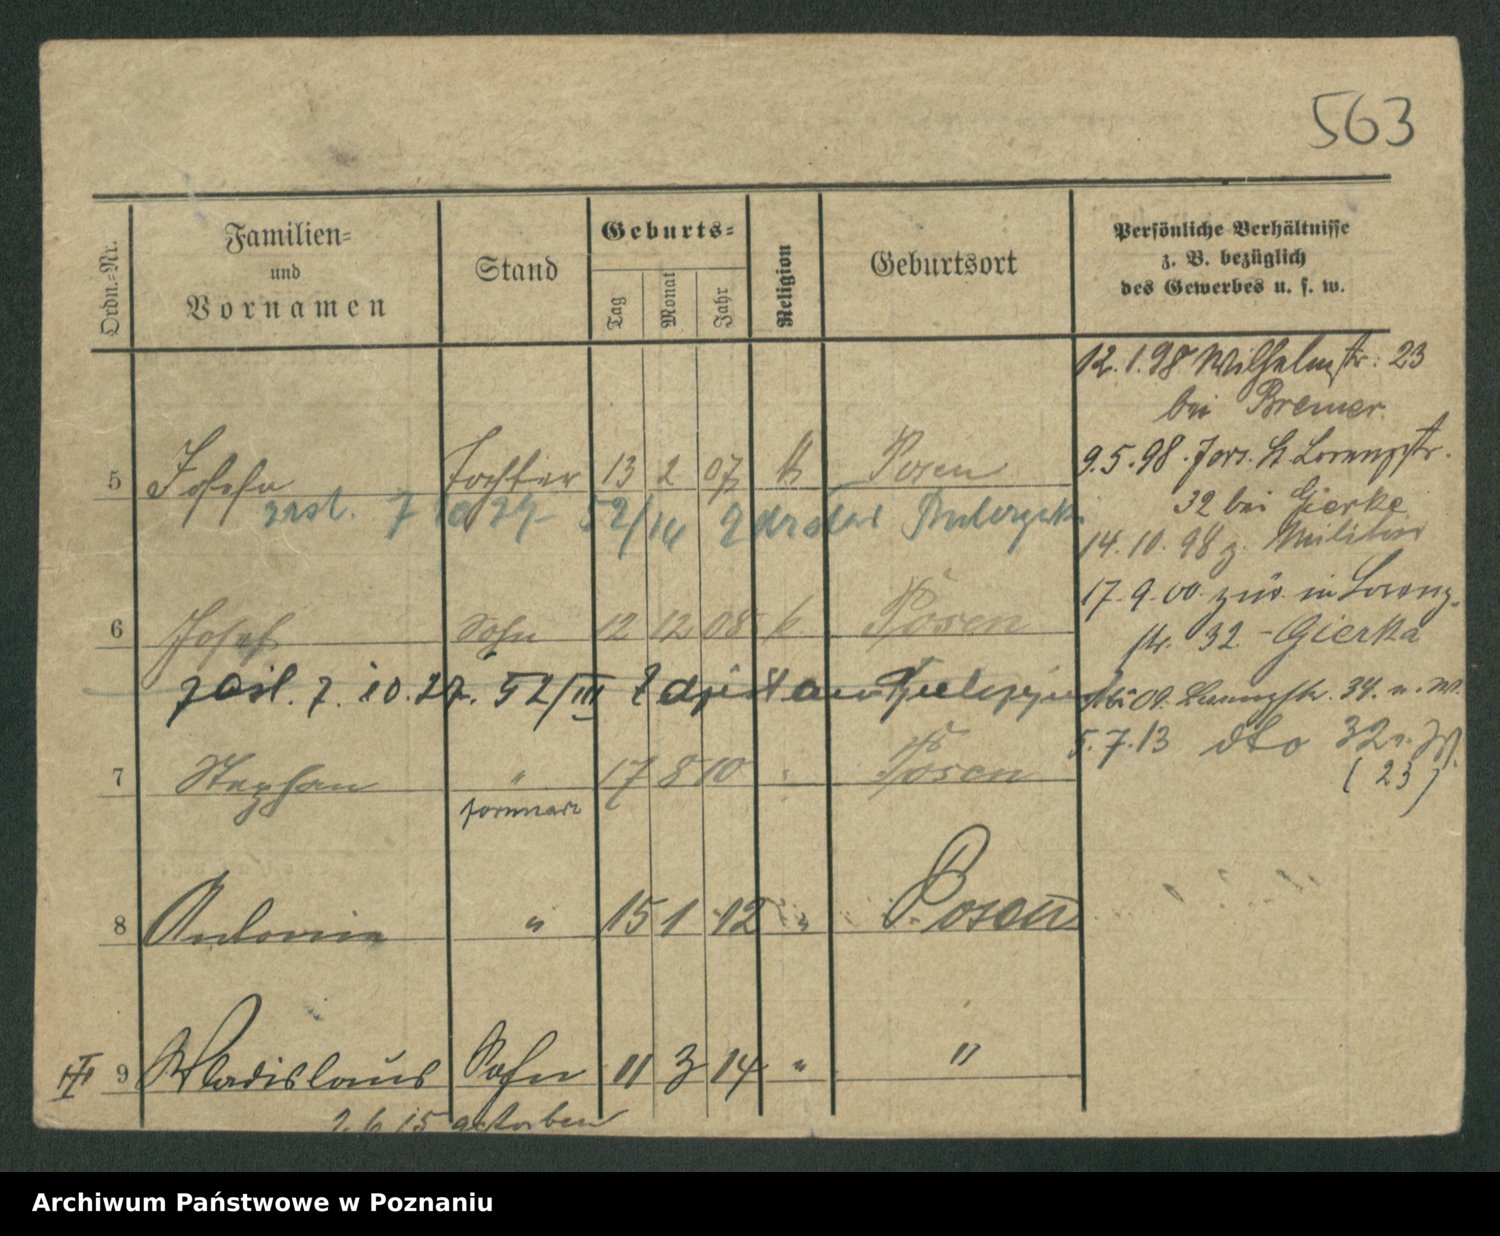 563
Ordn.-Nr.
Familien-
und
Vornamen
Stand
Geburts-
Tag
Monat
Jahr
Religion
Geburtsort
Persönliche Verhältnisse
z. B. bezüglich
des Gewerbes u. s. w.
12.1.98 Wilhelmstr. 23
bei Bremer.
9.5.98. St Lorenzstr.
32 bei Gierke
14.10.98 z. Militär
17.9.00. zür. in Lorenz-
str. 32 - Gierka
09. 34. n. W.
5.7.13 dto 32
(23)
5 Josefa Tochter 13 2 07 k Posen
7 10 27 52/14
6 Josef Sohn 12 12 08 k. Posen
zasl. 7. 10. 27. 52/III
7 Stephan " 17 8 10 Posen
8 Antonina " 15 1 12 " Posen
III 9 Wladislaus Sohn 11 3 14 " "
2.6.15 gestorben
Archiwum Państwowe w Poznaniu